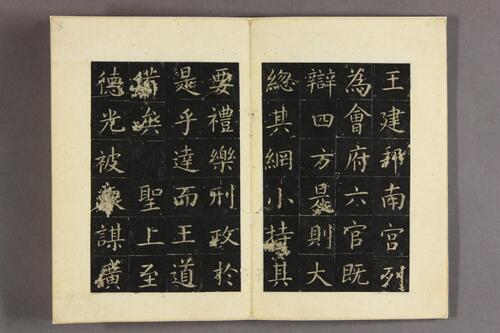 王建邦南宮列
為會府六官既
辯四方是則大
緫其綱小持其
要禮樂刑政於
是乎達而王道
備矣 聖上至
德光被睿謀廣